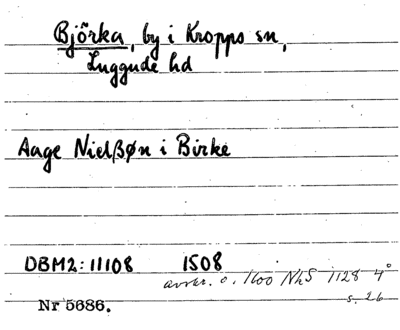 Björka, by i Kropps sn,
Luggude hd
Aage Nielßøn i Birke
DBM2: 11108 1508
avskr. o. 1600 NkS 1128 4°
s. 26
Nr 5686.